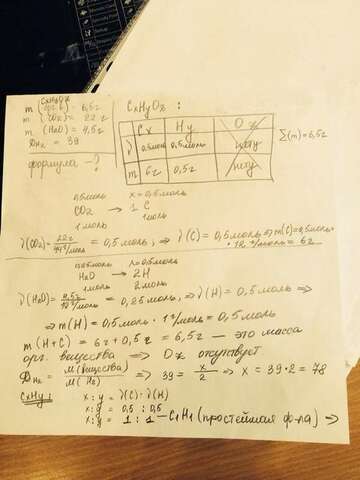 CxHyOz
m (орг. в.) = 6,5г
m (CO2) = 22 г
m (H2O) = 4,5г
DH2 = 39
формула — ?
CxHyOz :
Cx Hy Oz
ν 0,5моль 0,5моль нету
m 6г 0,5г нету
Σ(m) = 6,5г
0,5моль x = 0,5моль
CO2 → 1C
1моль 1моль
ν(CO2) = 22г / 44г/моль = 0,5моль, ⇒ ν(C) = 0,5моль, ⇒ m(C) = 0,5моль · 12г/моль = 6г
x = 0,5моль
H2O → 2H
1моль 2моль
ν(H2O) = 4,5г / 18г/моль = 0,25моль, ⇒ ν(H) = 0,5моль ⇒
⇒ m(H) = 0,5моль · 1г/моль = 0,5моль
m(H+C) = 6г + 0,5г = 6,5г — это масса
орг. вещества ⇒ Oz отсутствует
DH2 = M(вещества) / M(H2) ⇒ 39 = x/2 ⇒ x = 39·2 = 78
CxHy: x:y = ν(C) : ν(H)
x:y = 0,5 : 0,5
x:y = 1 : 1 — C1H1 (простейшая ф-ла) ⇒